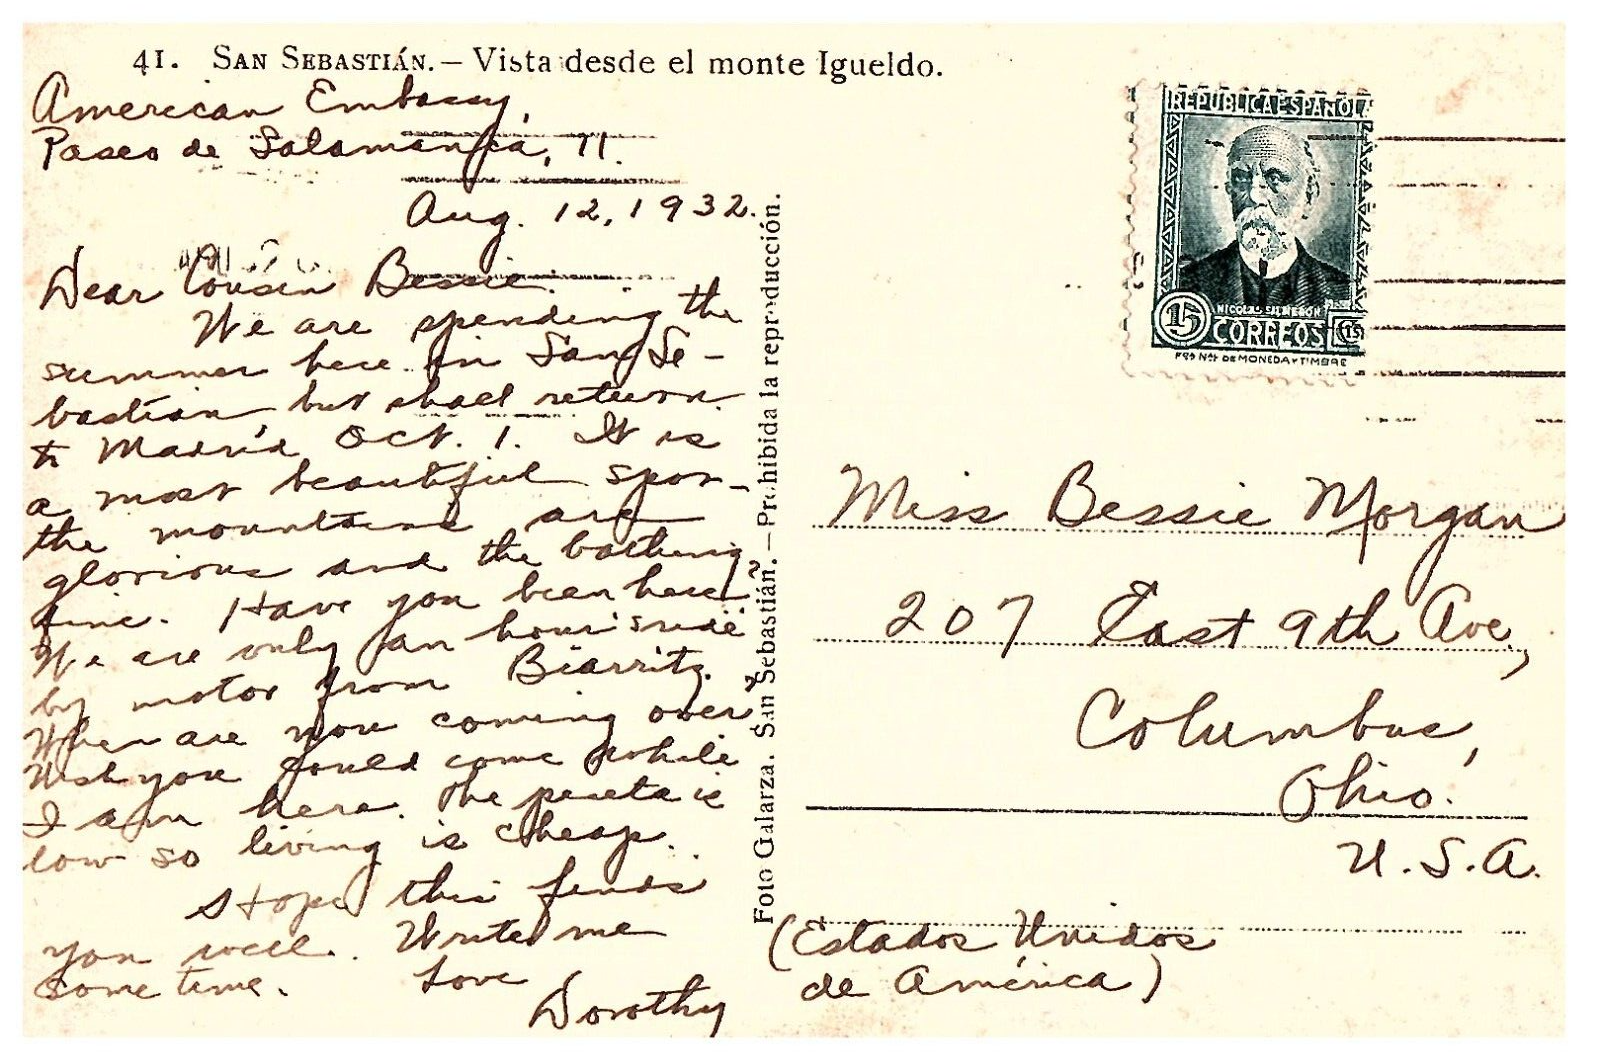 41. SAN SEBASTIÁN. — Vista desde el monte Igueldo.
American Embassy,
Paseo de Salamanca, 11.
Aug. 12, 1932.
Dear Cousin Bessie:
We are spending the
summer here in San Se-
bastian, but shall return
to Madrid Oct. 1. It is
a most beautiful spot -
the mountains are
glorious and the bathing
fine. Have you been here?
We are only an hour's ride
by motor from Biarritz.
When are you coming over?
Wish you could come while
I am here. The peseta is
low so living is cheap.
Hope this finds
you well. Write me
some time.
Love
Dorothy
Foto Galarza. San Sebastián. — Prohibida la reproducción.
REPUBLICA ESPAÑOLA
NICOLAS SALMERON
15 CORREOS 15
FCA NAL DE MONEDA Y TIMBRE
Miss Bessie Morgan
207 East 9th Ave,
Columbus,
Ohio.
U.S.A.
(Estados Unidos
de América)